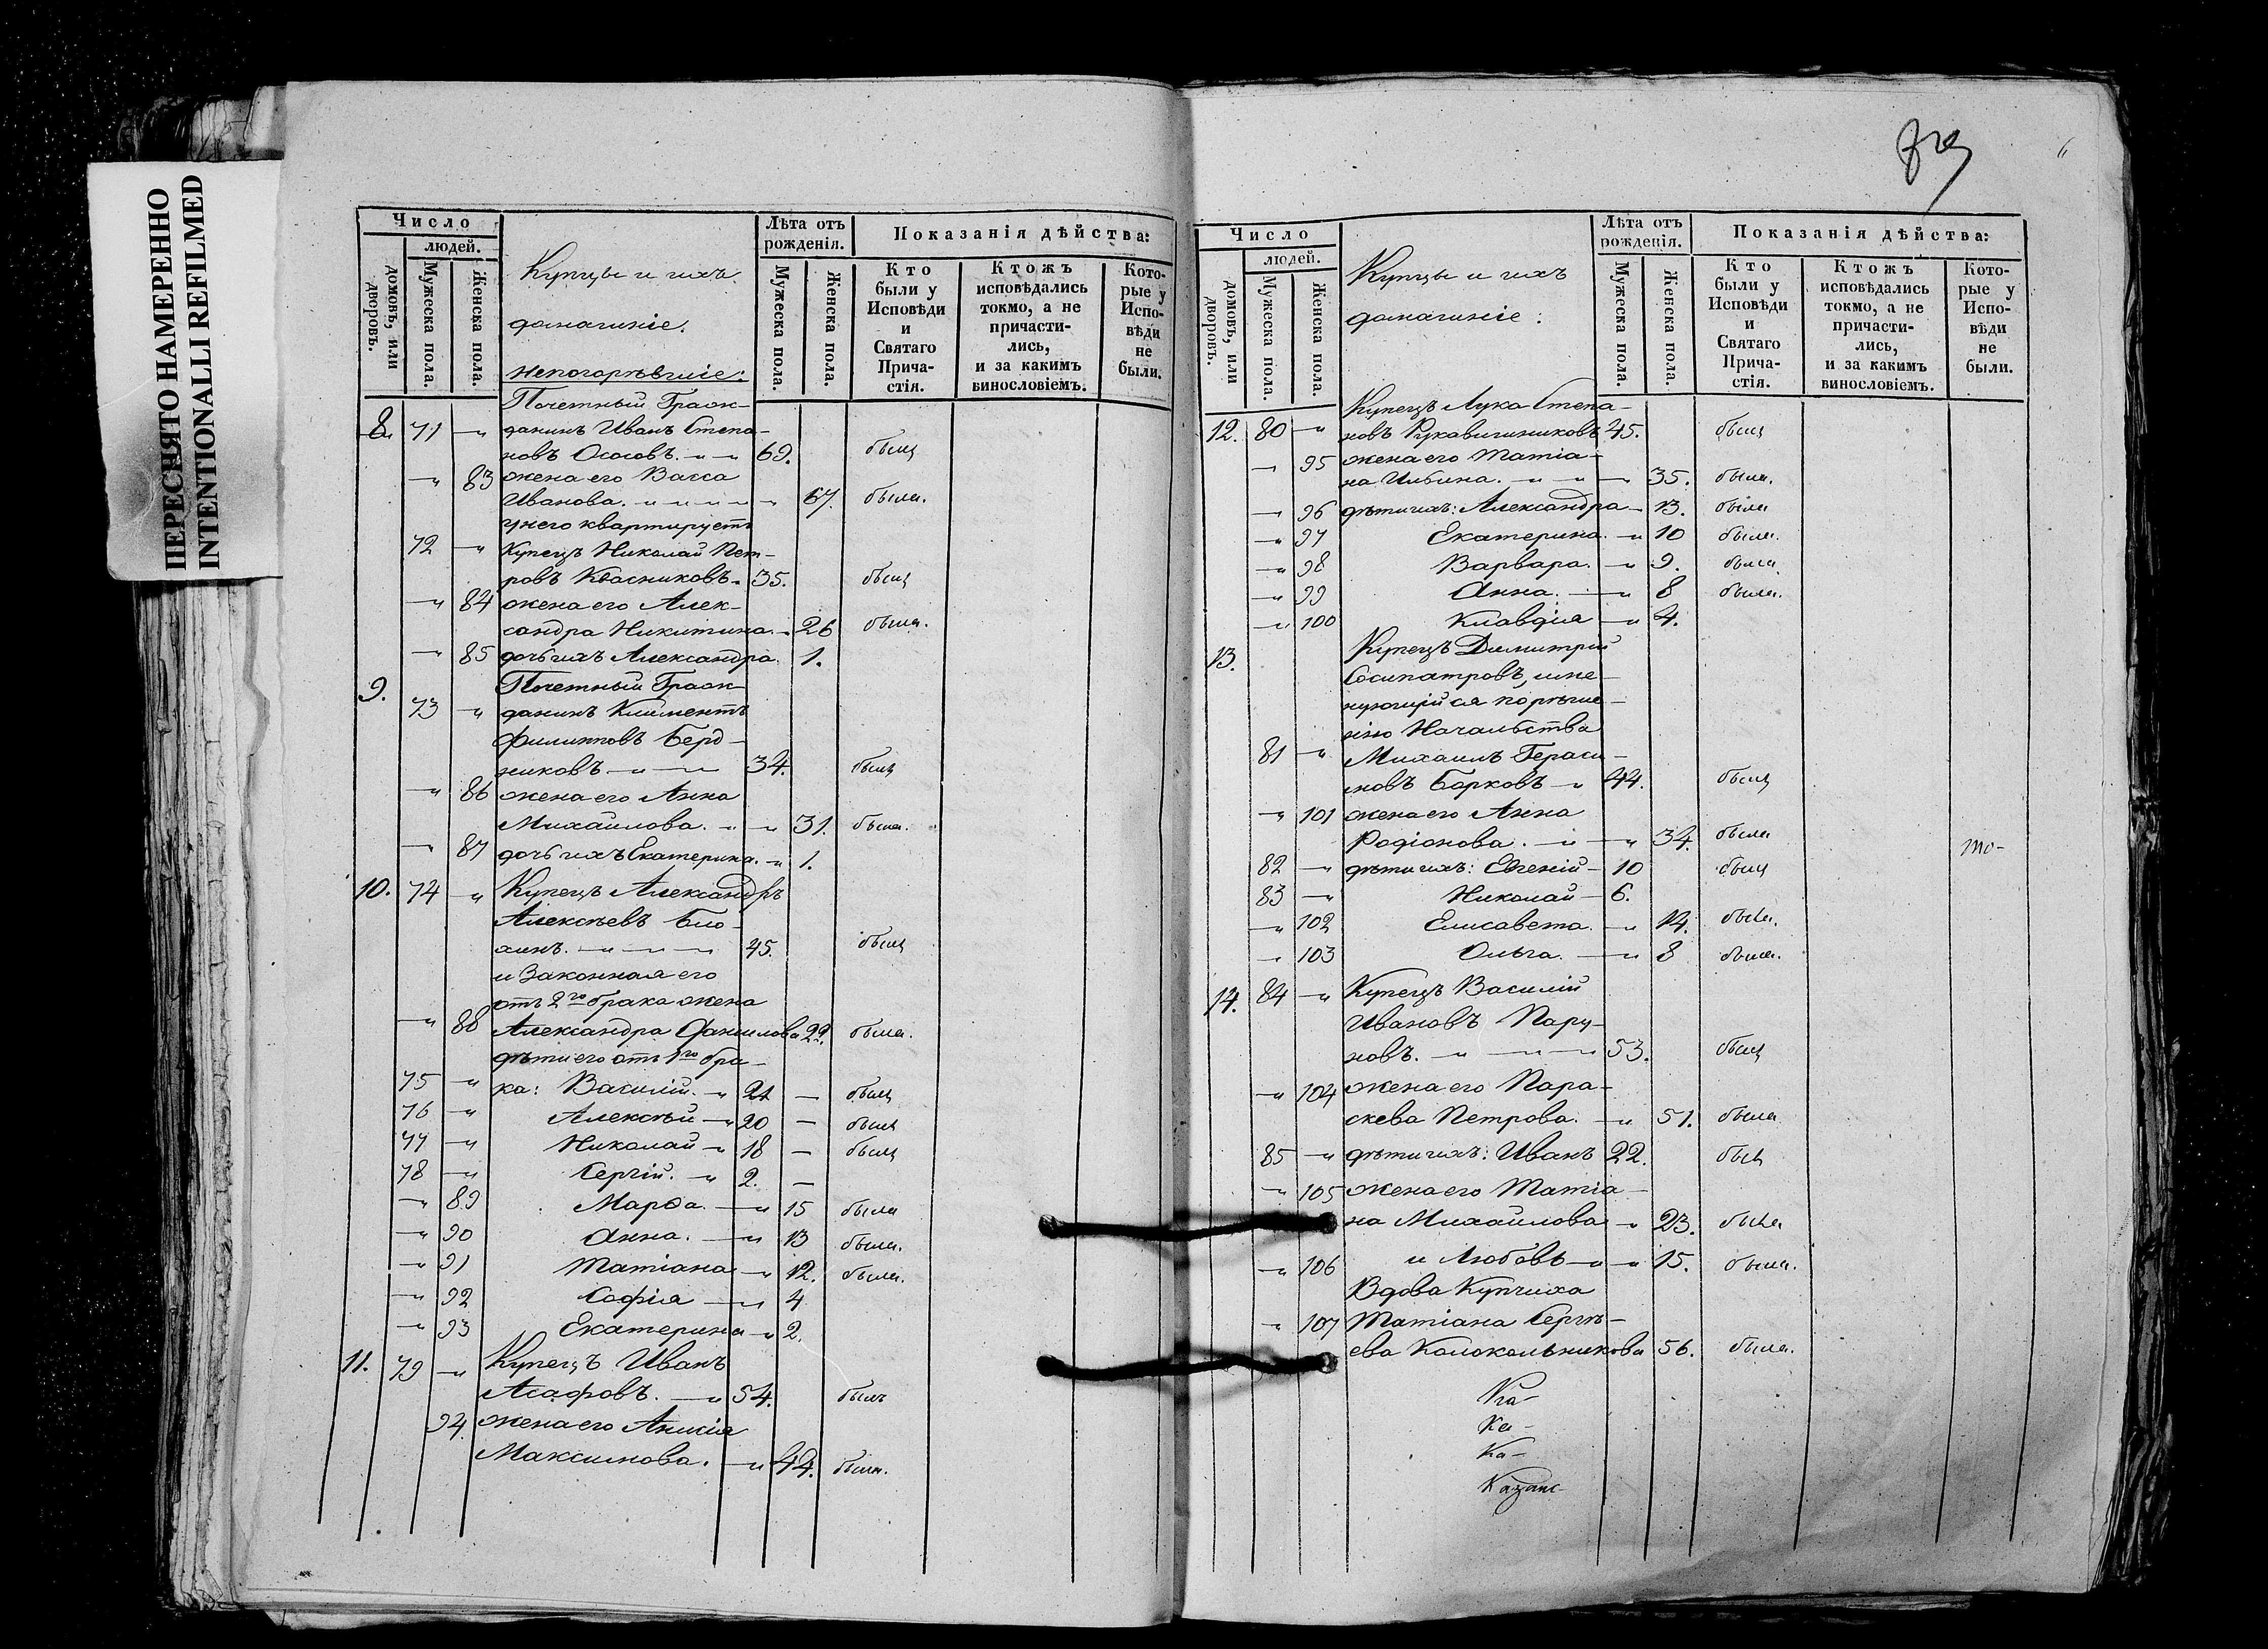 ПЕРЕСНЯТО НАМЕРЕННО
INTENTIONALLI REFILMED
Число
людей.
домовъ, или дворовъ.
Мужеска пола.
Женска пола.
Купцы и ихъ
домашніе.
непогорѣвшіе:
Лѣта отъ рожденія.
Мужеска пола.
Женска пола.
Показанія дѣйства:
Кто были у Исповѣди и Святаго Прича-стія.
Ктожъ исповѣдались токмо, а не причасти-лись, и за какимъ винословіемъ.
Кото-рые у Испо-вѣди не были.
Почетный Граж-
8. 71 " данинъ Иванъ Степа-
новъ Ососовъ. 69. былъ
" 83 жена его Васса
Иванова. 67. была.
у него квартируетъ
72 " Купецъ Николай Пет-
ровъ Квасниковъ. 35. былъ
" 84 жена его Алек-
сандра Никитина. 26 была.
" 85 дочь ихъ Александра. 1.
9. Почетный Граж-
73 " данинъ Климентъ
Филипповъ Берд-
никовъ 34. былъ
" 86 жена его Анна
Михайлова. 31. была.
" 87 дочь ихъ Екатерина. 1.
10. 74 " Купецъ Александръ
Алексѣевъ Бло-
хинъ. 45. былъ
и Законная его
отъ 2го брака жена
" 88 Александра Данилова 22. была.
дѣти его отъ 1го бра-
75 " ка: Василій. 21 — былъ
76 " Алексѣй 20 — былъ
77 " Николай 18 — былъ
78 " Сергій. 2. —
" 89 Марѳа. 15 была
" 90 Анна. 13 была.
" 91 Татіана 12. была.
" 92 Софія 4
" 93 Екатерина 2.
11. 79 " Купецъ Иванъ
Асафовъ. 54. былъ
94. жена его Анисія
Максимова. 44. была.
Число
людей.
домовъ, или дворовъ.
Мужеска пола.
Женска пола.
Купцы и ихъ
домашніе:
Лѣта отъ рожденія.
Мужеска пола.
Женска пола.
Показанія дѣйства:
Кто были у Исповѣди и Святаго Прича-стія.
Ктожъ исповѣдались токмо, а не причасти-лись, и за какимъ винословіемъ.
Кото-рые у Испо-вѣди не были.
Купецъ Лука Степа-
12. 80 " новъ Рукавишниковъ 45. былъ
" 95 жена его Татіа-
на Ильина. 35. была.
" 96 дѣти ихъ: Александра 13. была
" 97 Екатерина. 10 была.
" 98 Варвара. 9. была.
" 99 Анна. 8 была.
" 100 Клавдія 4.
Купецъ Димитрій
13. Сосипатровъ, име-
нующійся по рѣше-
нію Начальства
81 " Михаилъ Гераси-
мовъ Барковъ 44. былъ
" 101 жена его Анна
Родіонова. 34. была
то-
82 " дѣти ихъ: Евгеній 10 былъ
83 " Николай 6.
" 102 Елисавета. 14. была.
" 103 Ольга. 8 была.
14. 84 " Купецъ Василій
Ивановъ Пару-
новъ. 53. былъ
" 104 жена его Пара-
скева Петрова. 51. была
85 " дѣти ихъ: Иванъ 22. былъ
" 105 жена его Татіа-
на Михайлова 23. была
" 106 и Любовь 15. была.
Вдова Купчиха
" 107 Татіана Сергѣ-
ева Колокольникова 56. была.
Ка-
Ка-
Казанс